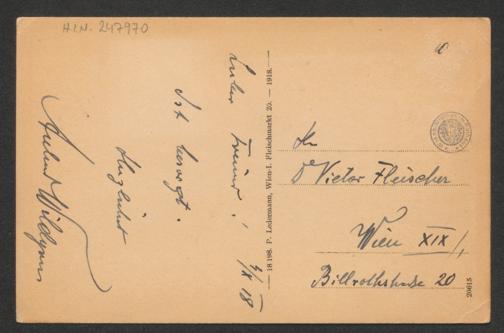 H.I.N. 247970
Lieber Freund!
9/IX 18
Ist besorgt.
Herzlichst
Anton Wildgans
18 198. P. Ledermann, Wien-I. Fleischmarkt 20. — 1918.
Hr
Dr Victor Fleischer
Wien XIX/,
Billrothstraße 20
20615